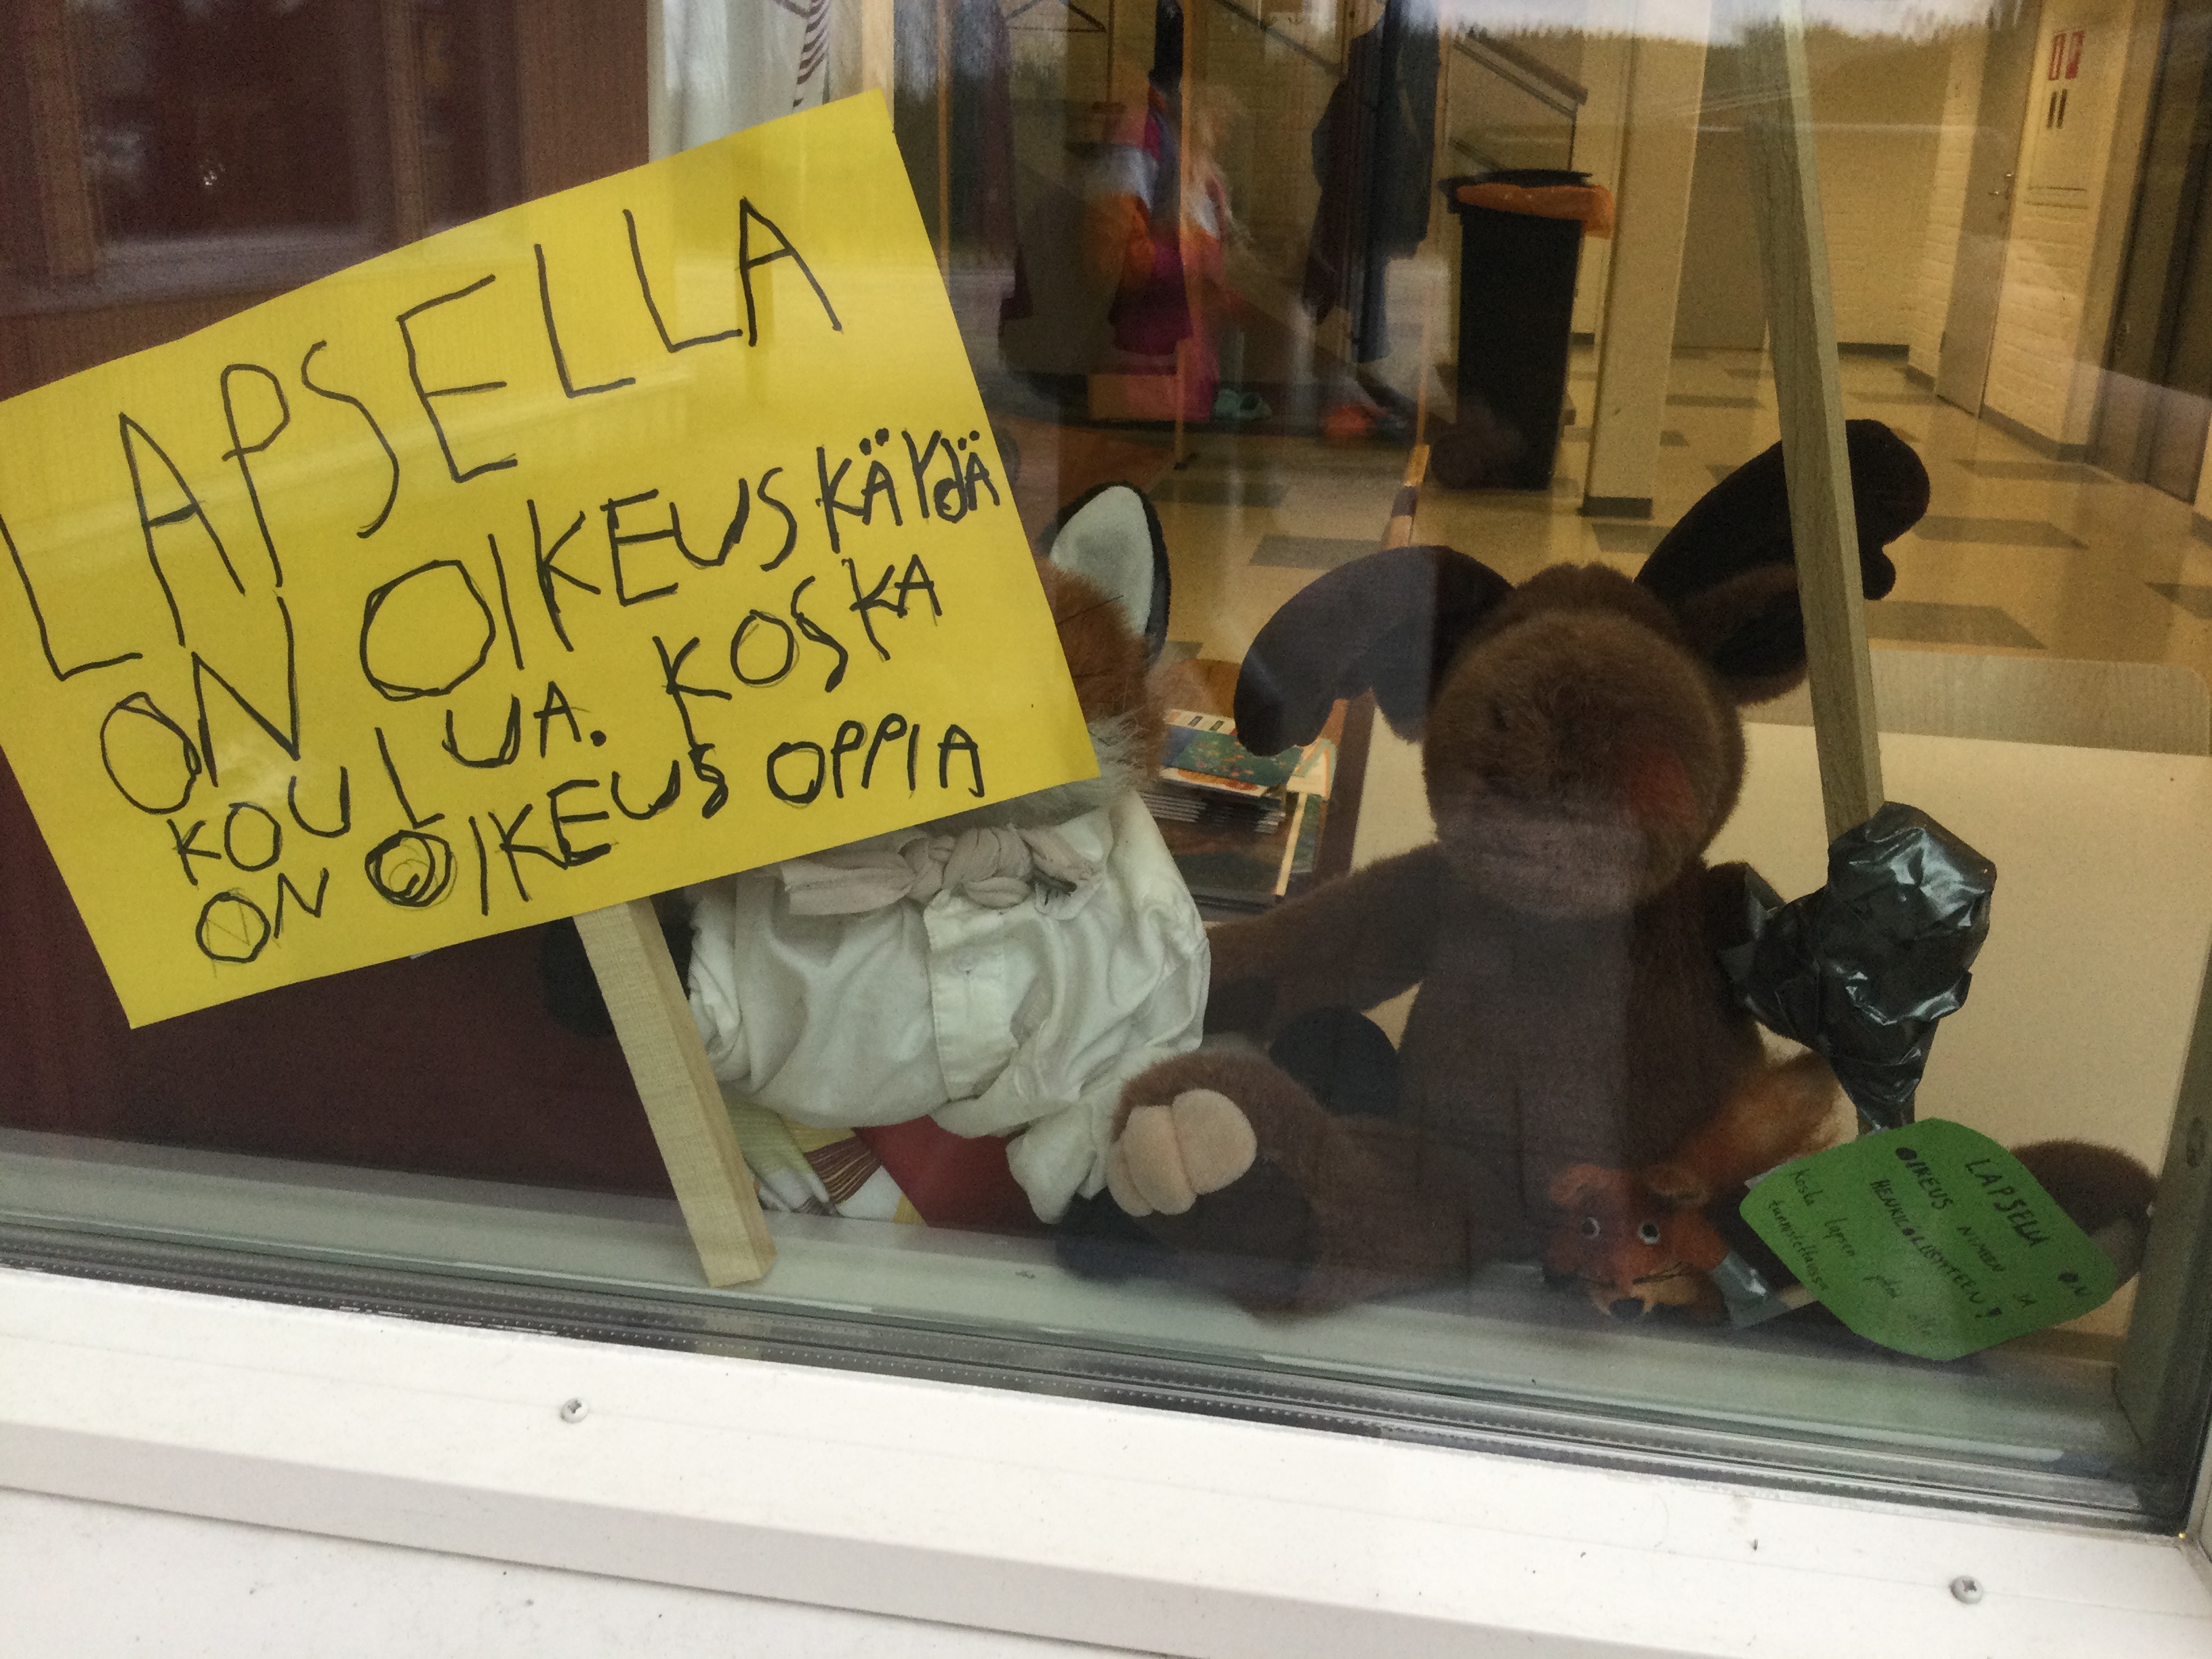 LAPSELLA
ON OIKEUS KÄYDÄ
KOULUA. KOSKA
ON OIKEUS OPPIA
LAPSELLA ON
OIKEUS NIMEEN JA
HENKILÖLLISYYTEEN!
koska lapsen pitää olla
tunnistettavissa